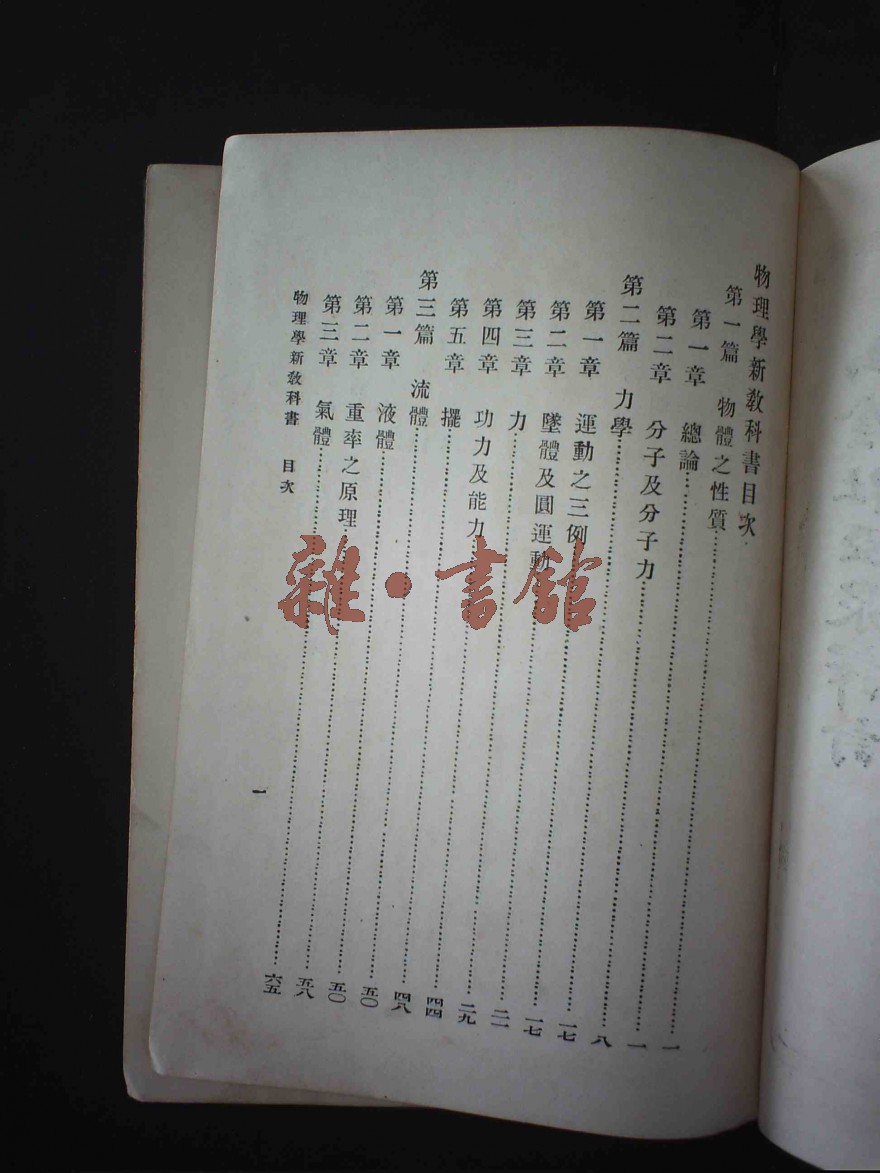 物理學新敎科書目次
第一篇 物體之性質……一
第一章 總論……一
第二章 分子及分子力……八
第二篇 力學……一七
第一章 運動之三例……一七
第二章 墜體及圓運動……二一
第三章 力……二九
第四章 功力及能力……四四
第五章 擺……四八
第三篇 流體……五〇
第一章 液體……五〇
第二章 重率之原理……五八
第三章 氣體……六五
物理學新敎科書 目次
一
雜·書館